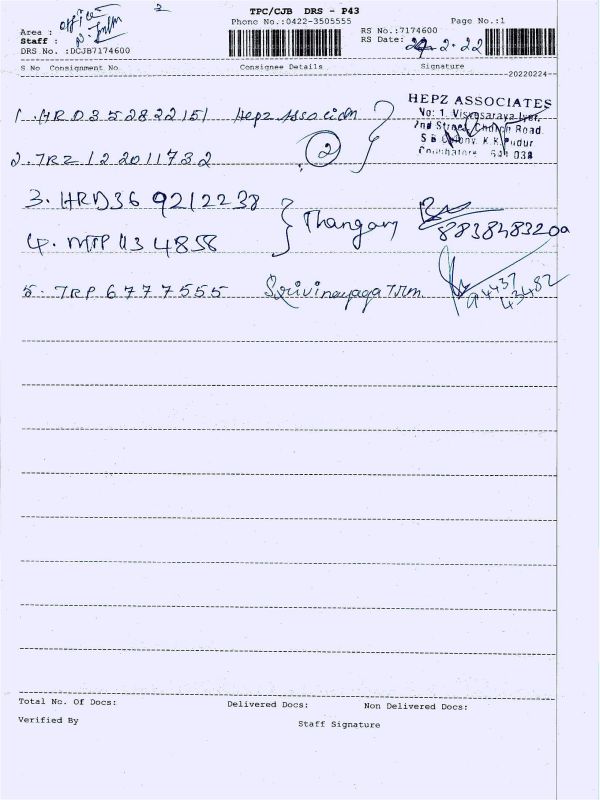 TPC/CJB DRS - P43
Phone No.:0422-3505555
Page No.:1
Area :
Staff :
DRS No. :DCJB7174600
RS No.:7174600
RS Date: 2.22
S No Consignment No
Consignee Details
Signature
20220224-
1. HRD352822151 Hepz Association
HEPZ ASSOCIATES
No: 1, Visvesaraya Iyer,
2nd Street, Church Road,
S B Colony, K.K.Pudur
Coimbatore 641 038
2. 7RZ122011732 2
3. HRD36 9212238
Thangam
8838483200
4. MTP 113 4858
5. 7RP 6777555 Srivinayaga
94437
43482
Total No. Of Docs:
Delivered Docs:
Non Delivered Docs:
Verified By
Staff Signature